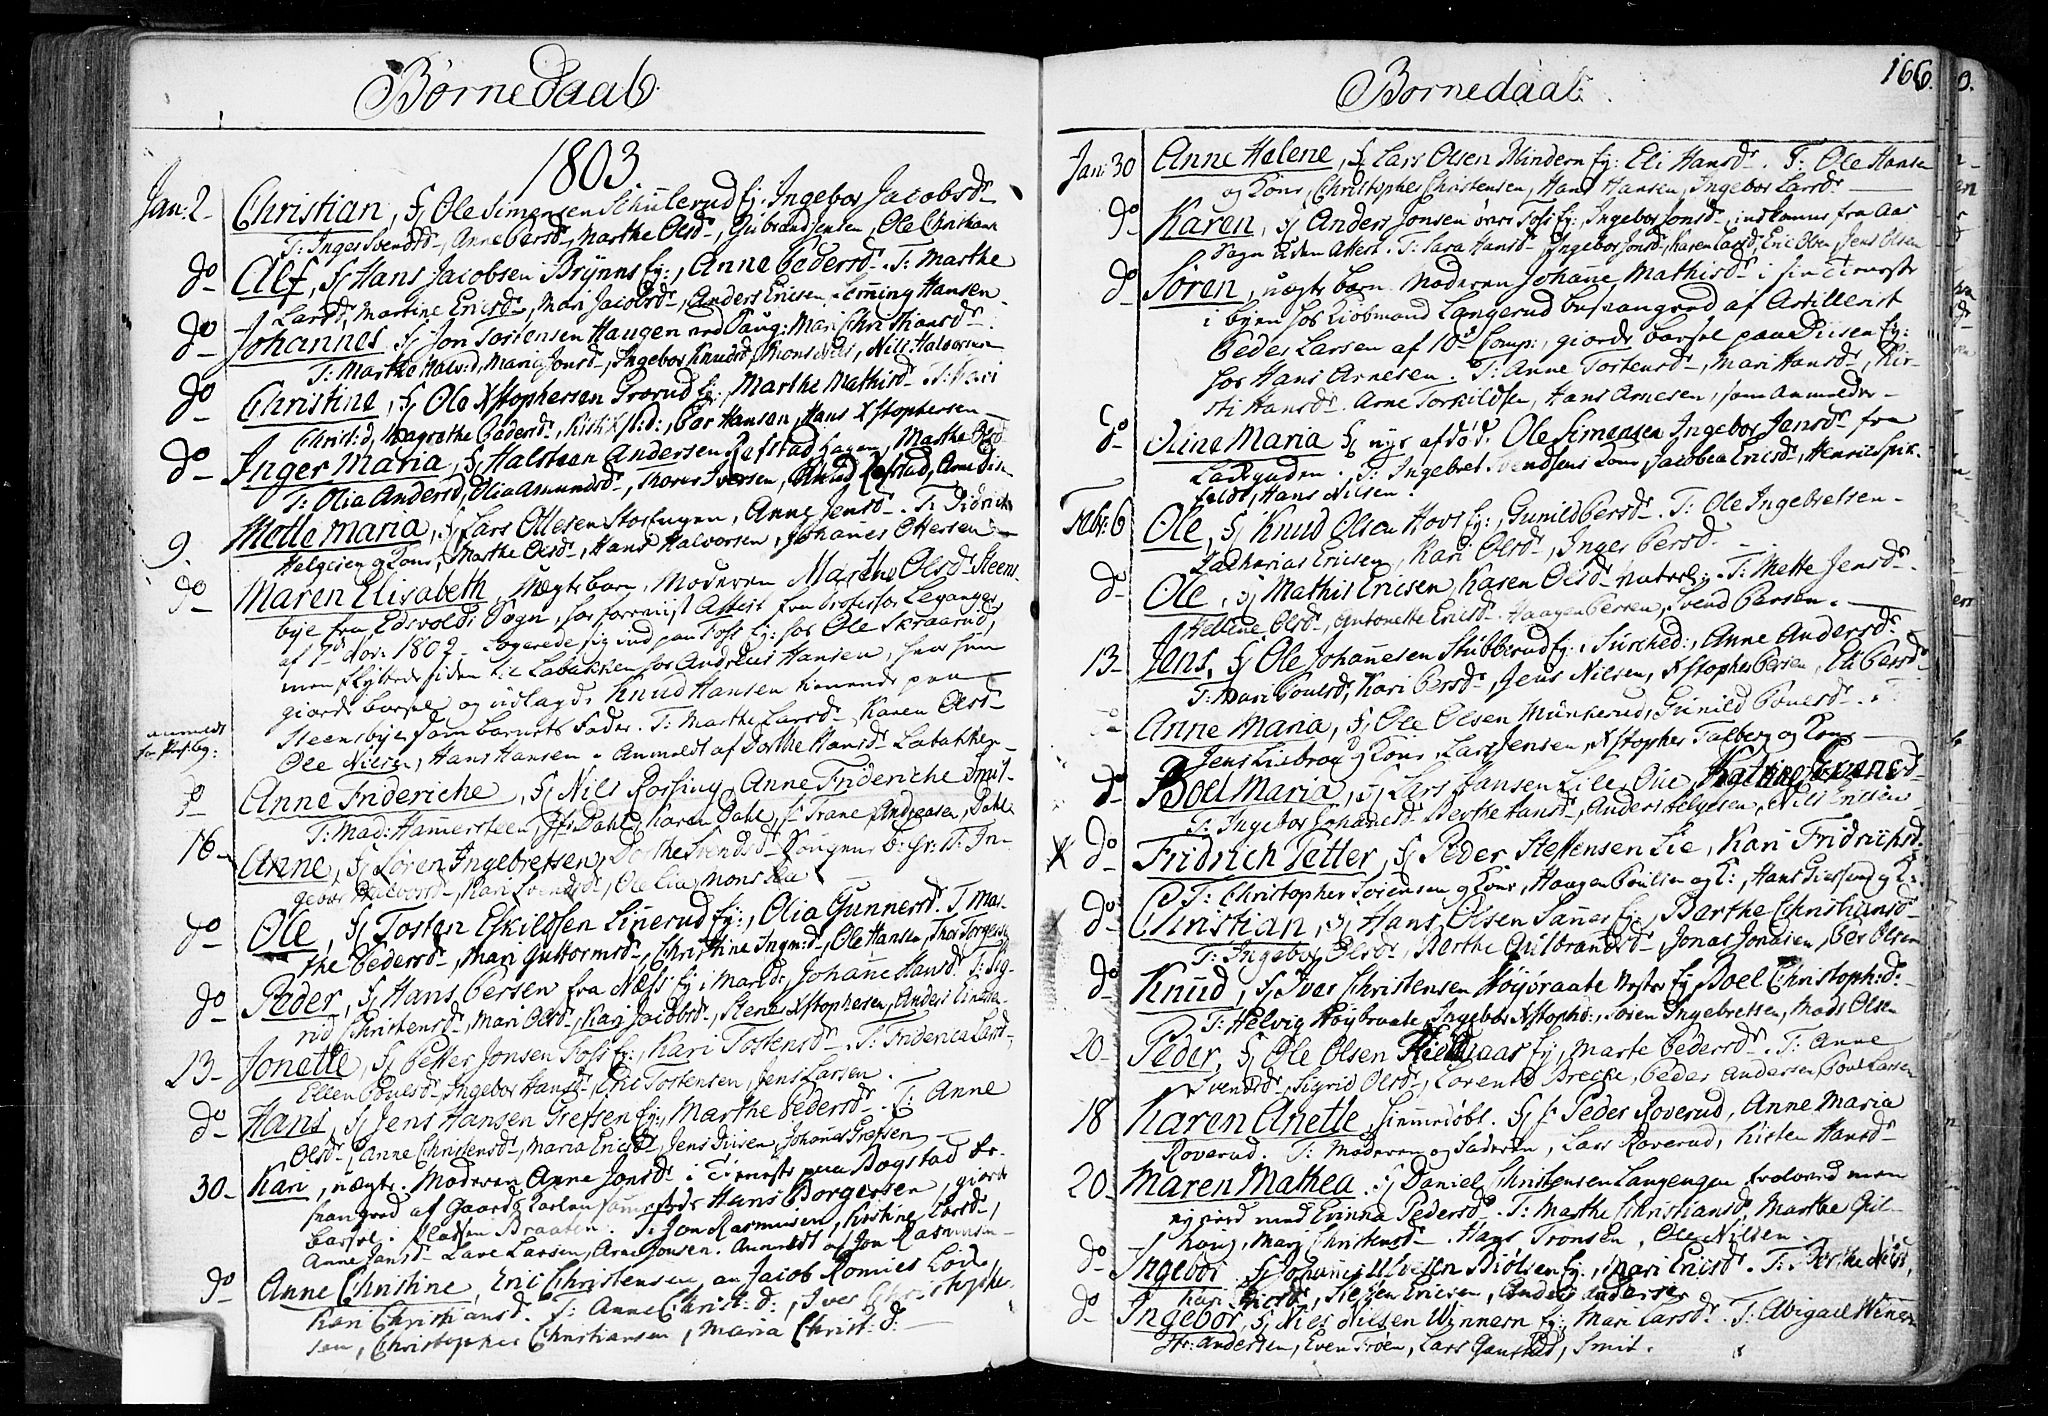 Børnedaab
1803
Jan: 2 Christian, S/ Ole Simensen Schulerud Ej: Ingebor Jacobsdr
T: Inger Svendsdr, Anne Persdr, Marthe Olsdr, Gulbrand Jensen, Ole Christians
do Alf, S/ Hans Jacobsen Brynns Ej:, Anne Pedersdr. T: Marthe
Larsdr, Martine Ericsdr, Mari Jacobsdr, Anders Ericsen, Hansen
do Johannes S/ Jon Tostensen Haugen ved Saug: Mari Christiansdr.
T: Marthe Halv:d, Mari Jonsdr, Ingebor Knudsdr, Nils Halvorsen
do Christine, S/ Ole Xstophersen Grorud Ej:, Marthe Mathisdr. T: Kari
Christ:d, Magrethe Pedersdr, Per Hansen, Hans Xstophersen
do Inger Maria, S/ Halsteen Andersen Refstad hagen, Marthe Olsdr
T: Olia Andersd, Olia Amundsdr, Thorer Iversen, Knud Refstad, Arne
9. Mette Maria, S/ Lars Ottesen Storengen, Anne Jensdr. T: Didrich
Helgesen og Kone, Marthe Olsdr, Hans Halvorsen, Johannes Ottersen
do Maren Elisabeth, Uægte barn, Moderen Marthe Olsdr Steens-
bye fra Edsvolds Sogn, har foreviist Attest fra Professor Leganger
af 7d Nov: 1802. Logerede sig ind paa Foss Ej: hos Ole Skraarud,
men flyttede siden til Labakken hos Andreas Hansen, hvor hun
giorde barsel og udlagde Knud Hansen tienende paa
Steensbye som barnets Fader. T: Marthe Larsdr Karen Olsdr
Ole Nilsen, Hans Hansen. Anmeldt af Dorthe Hansdr Labakken
anmeldt
do Anne Frideriche, S/ Nils Rossing, Anne Frideriche Smit-
T: Mad: Hammersteen, Jfr Dahl, Karen Dahl, Hr Trane, Andreasen, Dahl
16 Anne, S/ Søren Ingebretsen, Dorthe Svendsdr T: In-
gebor Halvorsdr, Kari Svendsdr, Ole Lia, Mons Lia
do Ole, S/ Tosten Eskildsen Linerud Ej:, Olia Gunnersd. T: Mar-
the Pedersdr, Mari Guttormsdr, Christine Ingm:d, Ole Hansen, Thor Torgersen
do Peder, S/ Hans Persen fra Næss Ej: i Mareds, Johanne Hansd. T: Sig-
rid Christensdr, Mari Olsdr, Kari Jacobsdr, Stener Xstophersen, Anders Einersen
23 Jonette, S/ Petter Jonsen Foss Ej:, Kari Tostensdr. T: Friderica Larsdr
Ellen Povelsdr, Ingebor Hansdr, Eric Tostensen, Jens Larsen.
do Hans, S/ Jens Hansen Grefsen Ej:, Marthe Pedersdr. T: Anne
Olsdr, Anne Christensdr, Maria Ericsdr, Jens Iversen, Johannes Grefsen
30 Kari, uægte. Moderen Anne Jonsdr i Tieneste paa Bogstad be-
svangred af Gaards Karlen sammesteds Hans Borgersen, giorde
barsel i Pladsen Braaten. T: Jon Rasmussen, Kirstine Larsdr,
Anne Jansdr Lars Larsen, Arne Jonsen. Anmeldt af Jon Rasmussen
do Anne Christine, Eric Christensen, Jacob Romies
Kari Christiansd. T: Anne Christ:d:, Iver Christopher-
sen, Christopher Christiansen, Maria Christ:d:
Børnedaab.
166.
Jan: 30 Anne Helene, S/ Lars Olsen Blindern Ej: Eli Hansdr. T: Ole Hansen
og Kone, Christopher Christensen, Hans Hansen, Ingebor Larsdr
do Karen, S/ Anders Jonsen øvre Foss Ej:, Ingebor Jonsdr, indkomne fra Aas
Sogn uden Attest. T: Sara Hansdr, Ingebor Jonsdr, Karen Larsd, Eric Olsen, Jens Olsen
do Søren, uægte barn Moderen Johanne Mathisdr i sin Tieneste
i byen hos Kiøbmand Langerud besvangred af Artillerist
Peder Larsen af 10d Comp:, giorde barsel paa Riisen Ej:
hos Hans Arnesen. T: Anne Tostensdr, Mari Hansdr, Kir-
sti Hansdr. Arne Torkildsen, Hans Arnesen, som anmelder
do Oline Maria S/ nys afdød. Ole Simensen Ingebor Jensdr fra
Ladegarden. T: Ingebret Svendsens Kone, Jacobea Ericsdr, Henric Spik-
feldt, Hans Nilsen.
Febr: 6 Ole, S/ Knud Olsen Hovs Ej:, Gunild Persdr. T: Ole Ingebretsen
Zacharias Ericsen, Kari Olsdr, Inger Persdr.
do Ole, S/ Mathis Ericsen, Karen Olsdr T: Mette Jensdr.
Hellene Olsdr, Antonette Ericsdr. Haagen Persen, Svend Persen.
13 Jens, S/ Ole Johannesen Stubberud Ej: i Sørked:, Anne Andersdr
T: Mari Povelsd, Kari Persdr, Jens Nilsen, Xstopher Persen, Eli Persdr
do Anne Maria, S/ Ole Olsen Munkerud, Gunild Povelsdr. T:
Jens Lisbraa og Kone, Lars Jensen, Xstopher Talberg og Kone
do Boel Maria, S/ Lars Hansen Lille Øue, Katrine
T: Ingebor Johannesdr Berthe Hansdr, Anders Helgesen, Nils Ericsen
X do Fridrich Petter, S/ Peder Steffensen Lie, Kari Fridrichsd.
T: Christopher Sørensen og Kone, Haagen Poulsen og K:, Hans og K:
do Christian, S/ Hans Olsen Sannes Ej:, Berthe Christiansdr
T: Ingebor Olsdr, Berthe Gulbrandsdr, Jonas Jonasen, Per Olsen
do Knud, S/ Iver Christensen Høybraate Ej:, Boel Christoph:d:
T: Helvig Høybraate, Ingebor Xstophd:, Søren Ingebretsen, Mads Olsen
20 Peder, S/ Ole Olsen Ej:, Marte Pedersdr. T: Anne
Svendsdr, Sigrid Olsdr, Lorents Brecke, Peder Andersen, Povel Larsen
18 Karen Anette, hiemmedøbt. S/ Hr Peder Roverud, Anne Maria
Roverud. T: Moderen og Faderen, Lars Roverud, Kirsten Hansdr
20 Maren Mathea. S/ Daniel Christensen Langengen
med Evinna Pedersdr. T: Marthe Christiansdr, Marthe Gul-
houg, Mari Christensdr. Hans Tronsen, Ole Nilsen.
do Ingebor S/ Johannes Biølsen Ej:, Mari Ericsdr. T: Berthe Nilsd,
Kari Ericsdr, Steffen Ericsen, Anders Andersen
do Ingebor, S/ Nils Nilsen Winnern Ej:, Mari Larsdr. T: Abigael Winern
Hr: Andersen, Even Troen, Lars Ganstad, Smit.